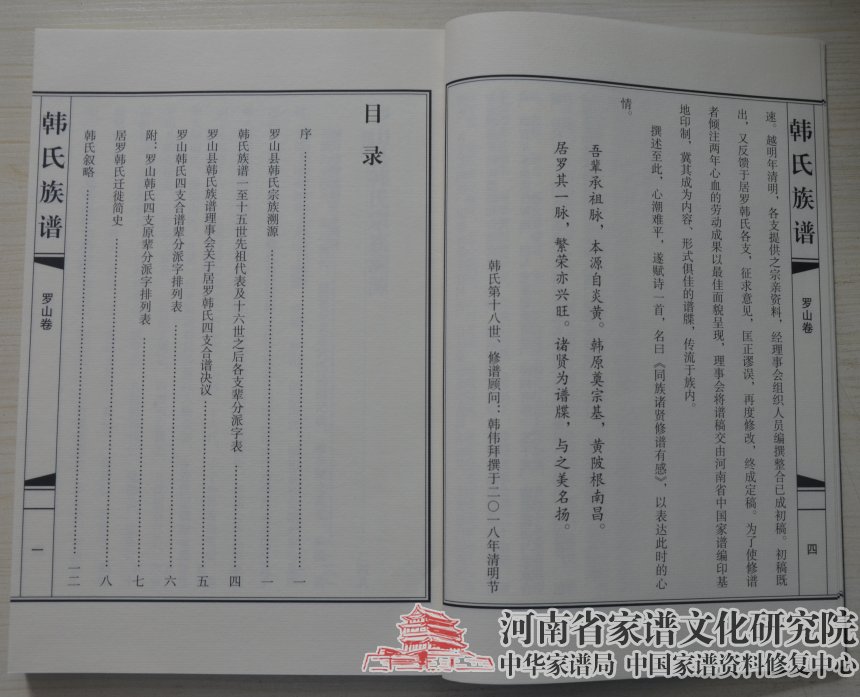 韩氏族谱
罗山卷
四
速。越明年清明，各支提供之宗亲资料，经理事会组织人员编撰整合已成初稿。初稿既
出，又反馈于居罗韩氏各支，征求意见，匡正谬误，再度修改，终成定稿。为了使修谱
者倾注两年心血的劳动成果以最佳面貌呈现，理事会将谱稿交由河南省中国家谱编印基
地印制，冀其成为内容、形式俱佳的谱牒，传流于族内。
撰述至此，心潮难平，遂赋诗一首，名曰《同族诸贤修谱有感》，以表达此时的心
情。
吾辈承祖脉，本源自炎黄。韩原奠宗基，黄陂根南昌。
居罗其一脉，繁荣亦兴旺。诸贤为谱牒，与之美名扬。
韩氏第十八世、修谱顾问：韩伟拜撰于二〇一八年清明节
目录
序……一
罗山县韩氏宗族溯源……一
韩氏族谱一至十五世先祖代表及十六世之后各支辈分派字表……四
罗山县韩氏族谱理事会关于居罗韩氏四支合谱决议……五
罗山韩氏四支合谱辈分派字排列表……六
附：罗山韩氏四支原辈分派字排列表……七
居罗韩氏迁徙简史……八
韩氏叙略……一二
韩氏族谱
罗山卷
一
河南省家谱文化研究院
中华家谱局 中国家谱资料修复中心